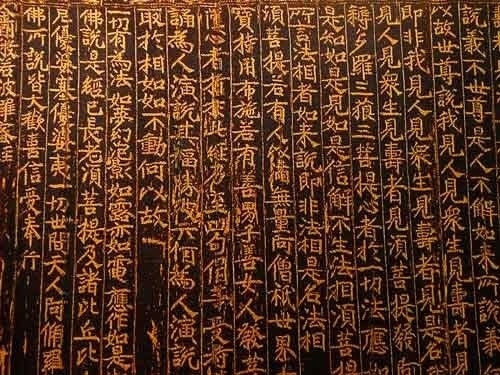 說義不世尊是人不解如来所說義
以故世尊說我見人見衆生見壽者見
即非我見人見衆生見壽者見是名
見人見衆生見壽者見湏菩提發阿
耨多羅三藐三菩提心者於一切法應如
是知如是見如是信解不生法相湏菩提
所言法相者如来說即非法相是名法相
湏菩提若有人以滿無量阿僧祇世界
寶持用布施若有善男子善女人發菩
心者持於此經乃至四句偈等受持
誦為人演說其福勝彼云何為人演說
取於相如如不動何以故
切有為法如夢幻泡影如露亦如電應作如是
佛說是經已長老湏菩提及諸比丘比
尼優婆塞優婆夷一切世間天人阿修羅
佛所說皆大歡喜信受奉行
金剛般若波羅